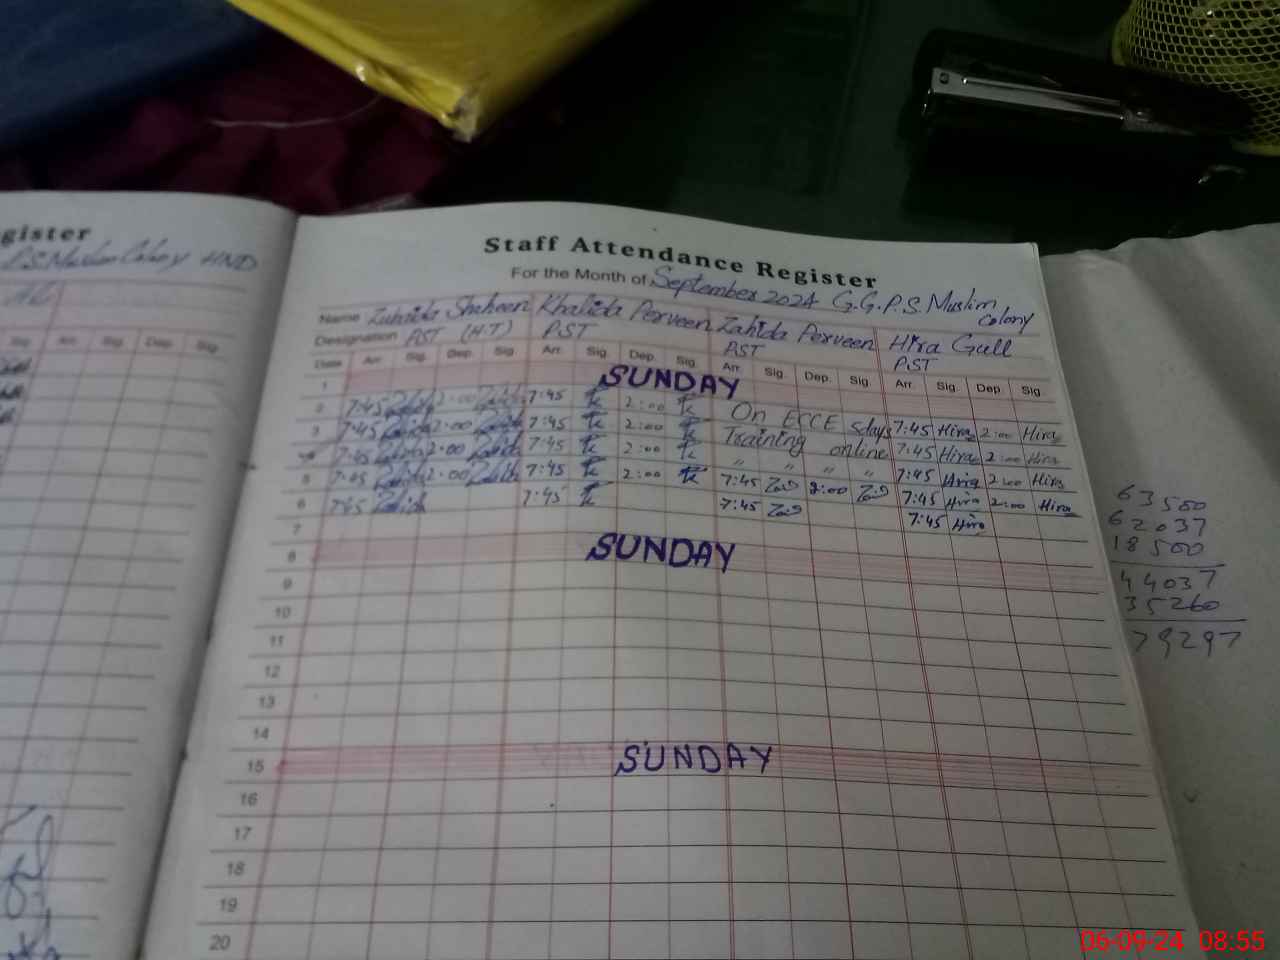 gister
P.S. Muslim Colony HND
Sig. Arr. Sig. Dep. Sig.
Staff Attendance Register
For the Month of September 2024 G.G.P.S. Muslim Colony
Name Zubaida Shaheen Khalida Perveen Zahida Perveen Hira Gull
Designation PST (H.T) PST PST PST
Date Arr. Sig. Dep. Sig. Arr. Sig. Dep. Sig. Arr. Sig. Dep. Sig. Arr. Sig. Dep. Sig.
1 SUNDAY
2 7:45 2:00 7:45 2:00 On ECCE 5days 7:45 Hira 2:00 Hira
3 7:45 2:00 7:45 2:00 Training online 7:45 Hira 2:00 Hira
4 7:45 2:00 7:45 2:00 " " " " 7:45 Hira 2:00 Hira
5 7:45 2:00 7:45 2:00 7:45 2:00 7:45 Hira 2:00 Hira
6 7:45 7:45 7:45 7:45 Hira
7
8 SUNDAY
9
10
11
12
13
14
15 SUNDAY
16
17
18
19
20
63500
62037
18500
44037
35260
79297
06-09-24 08:55